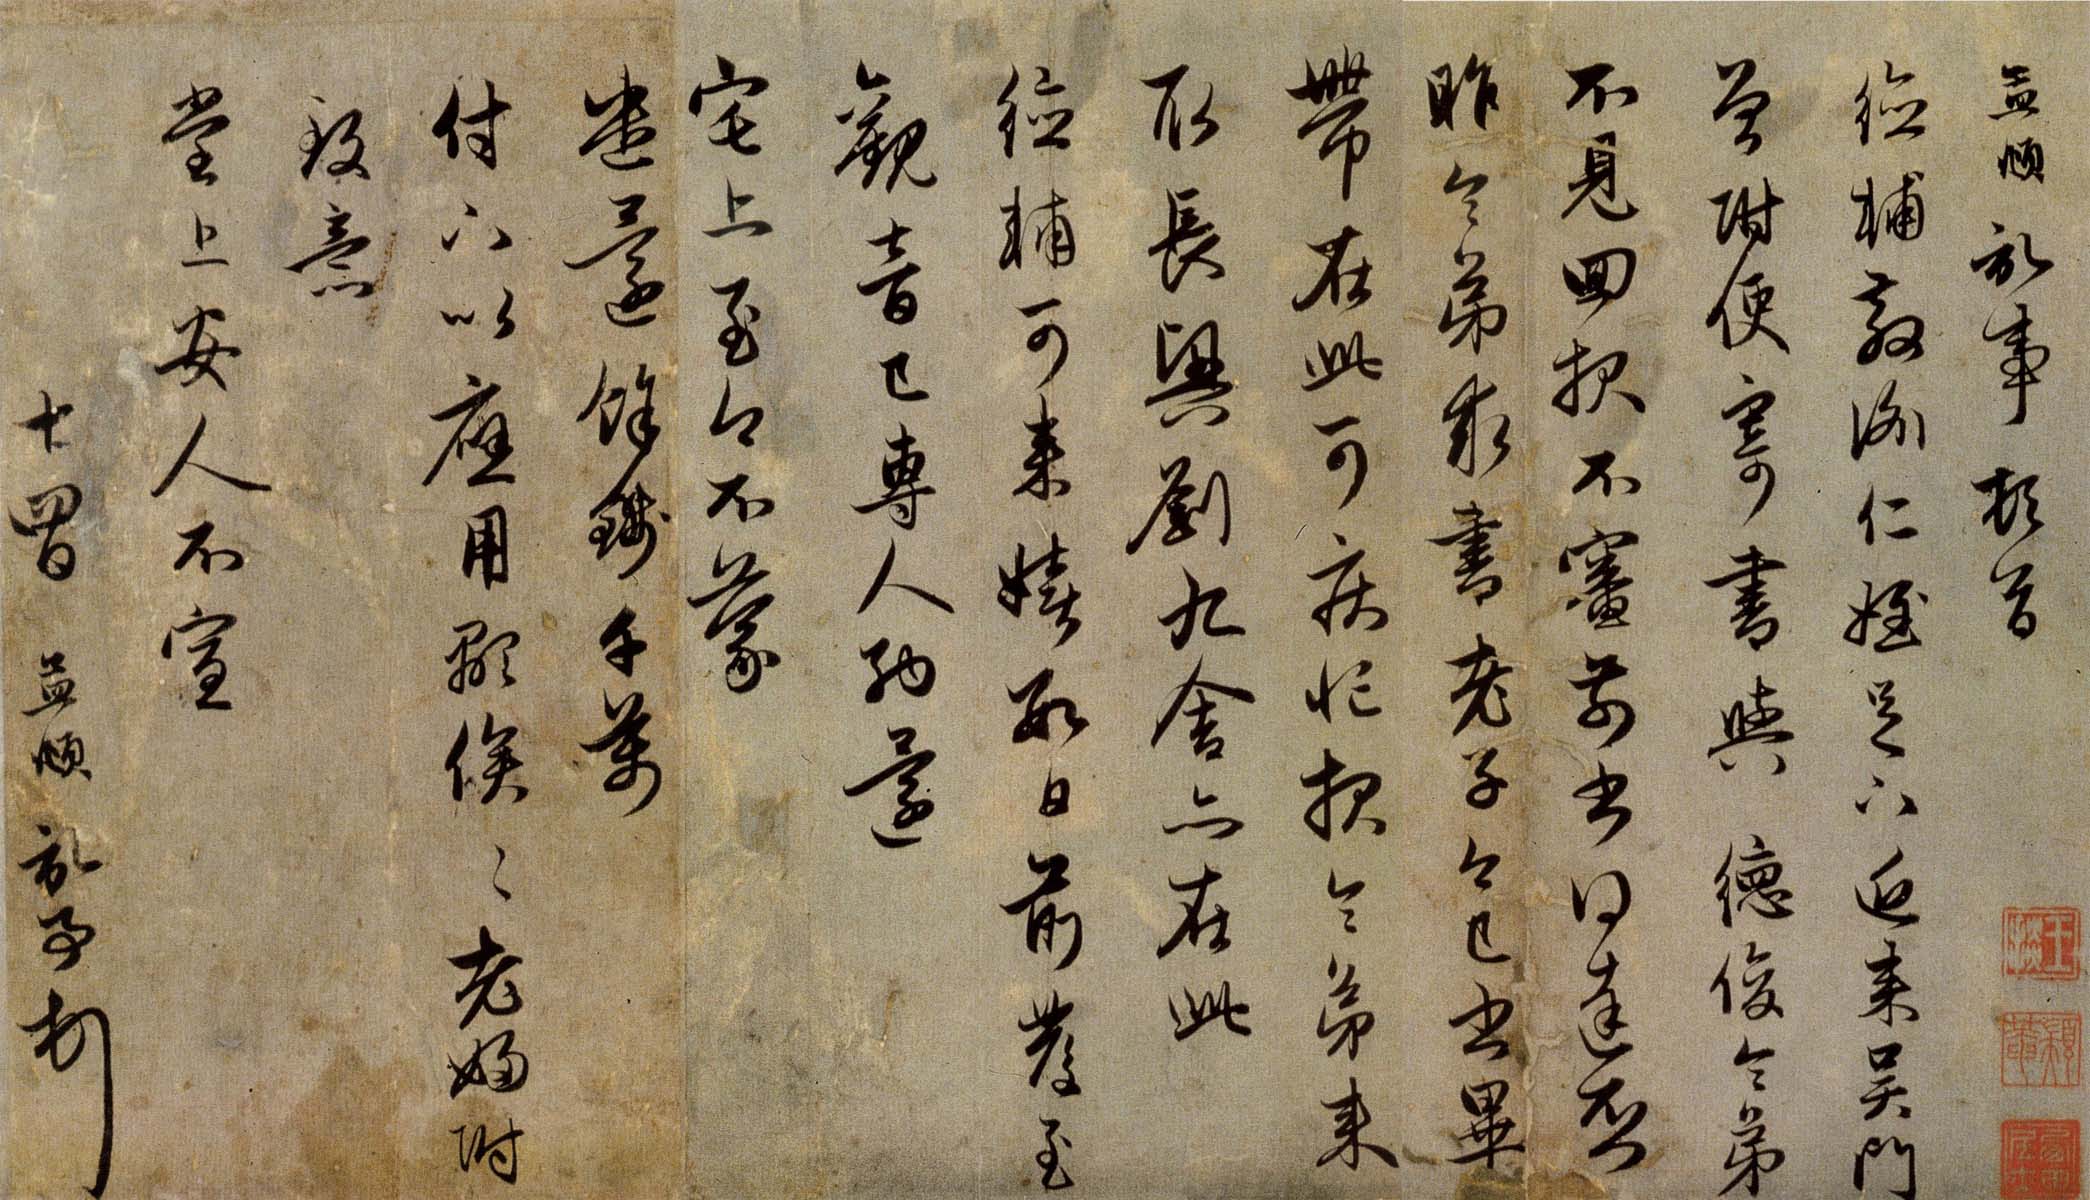 孟頫記事頓首
德輔教諭仁姪足下近來吳門
曾附便寄書與德俊令弟
不見回報不審前書得達否
昨令弟求書老子今已書畢
帶在此可疾忙報令弟來
取長興劉九舍亦在此
德輔可來嬉數日前發至
觀音已專人納還
宅上至今不蒙
遣還餘錢千萬
付下以應用顒俟〻老婦附
致意
堂上安人不宣
十四日孟頫記事